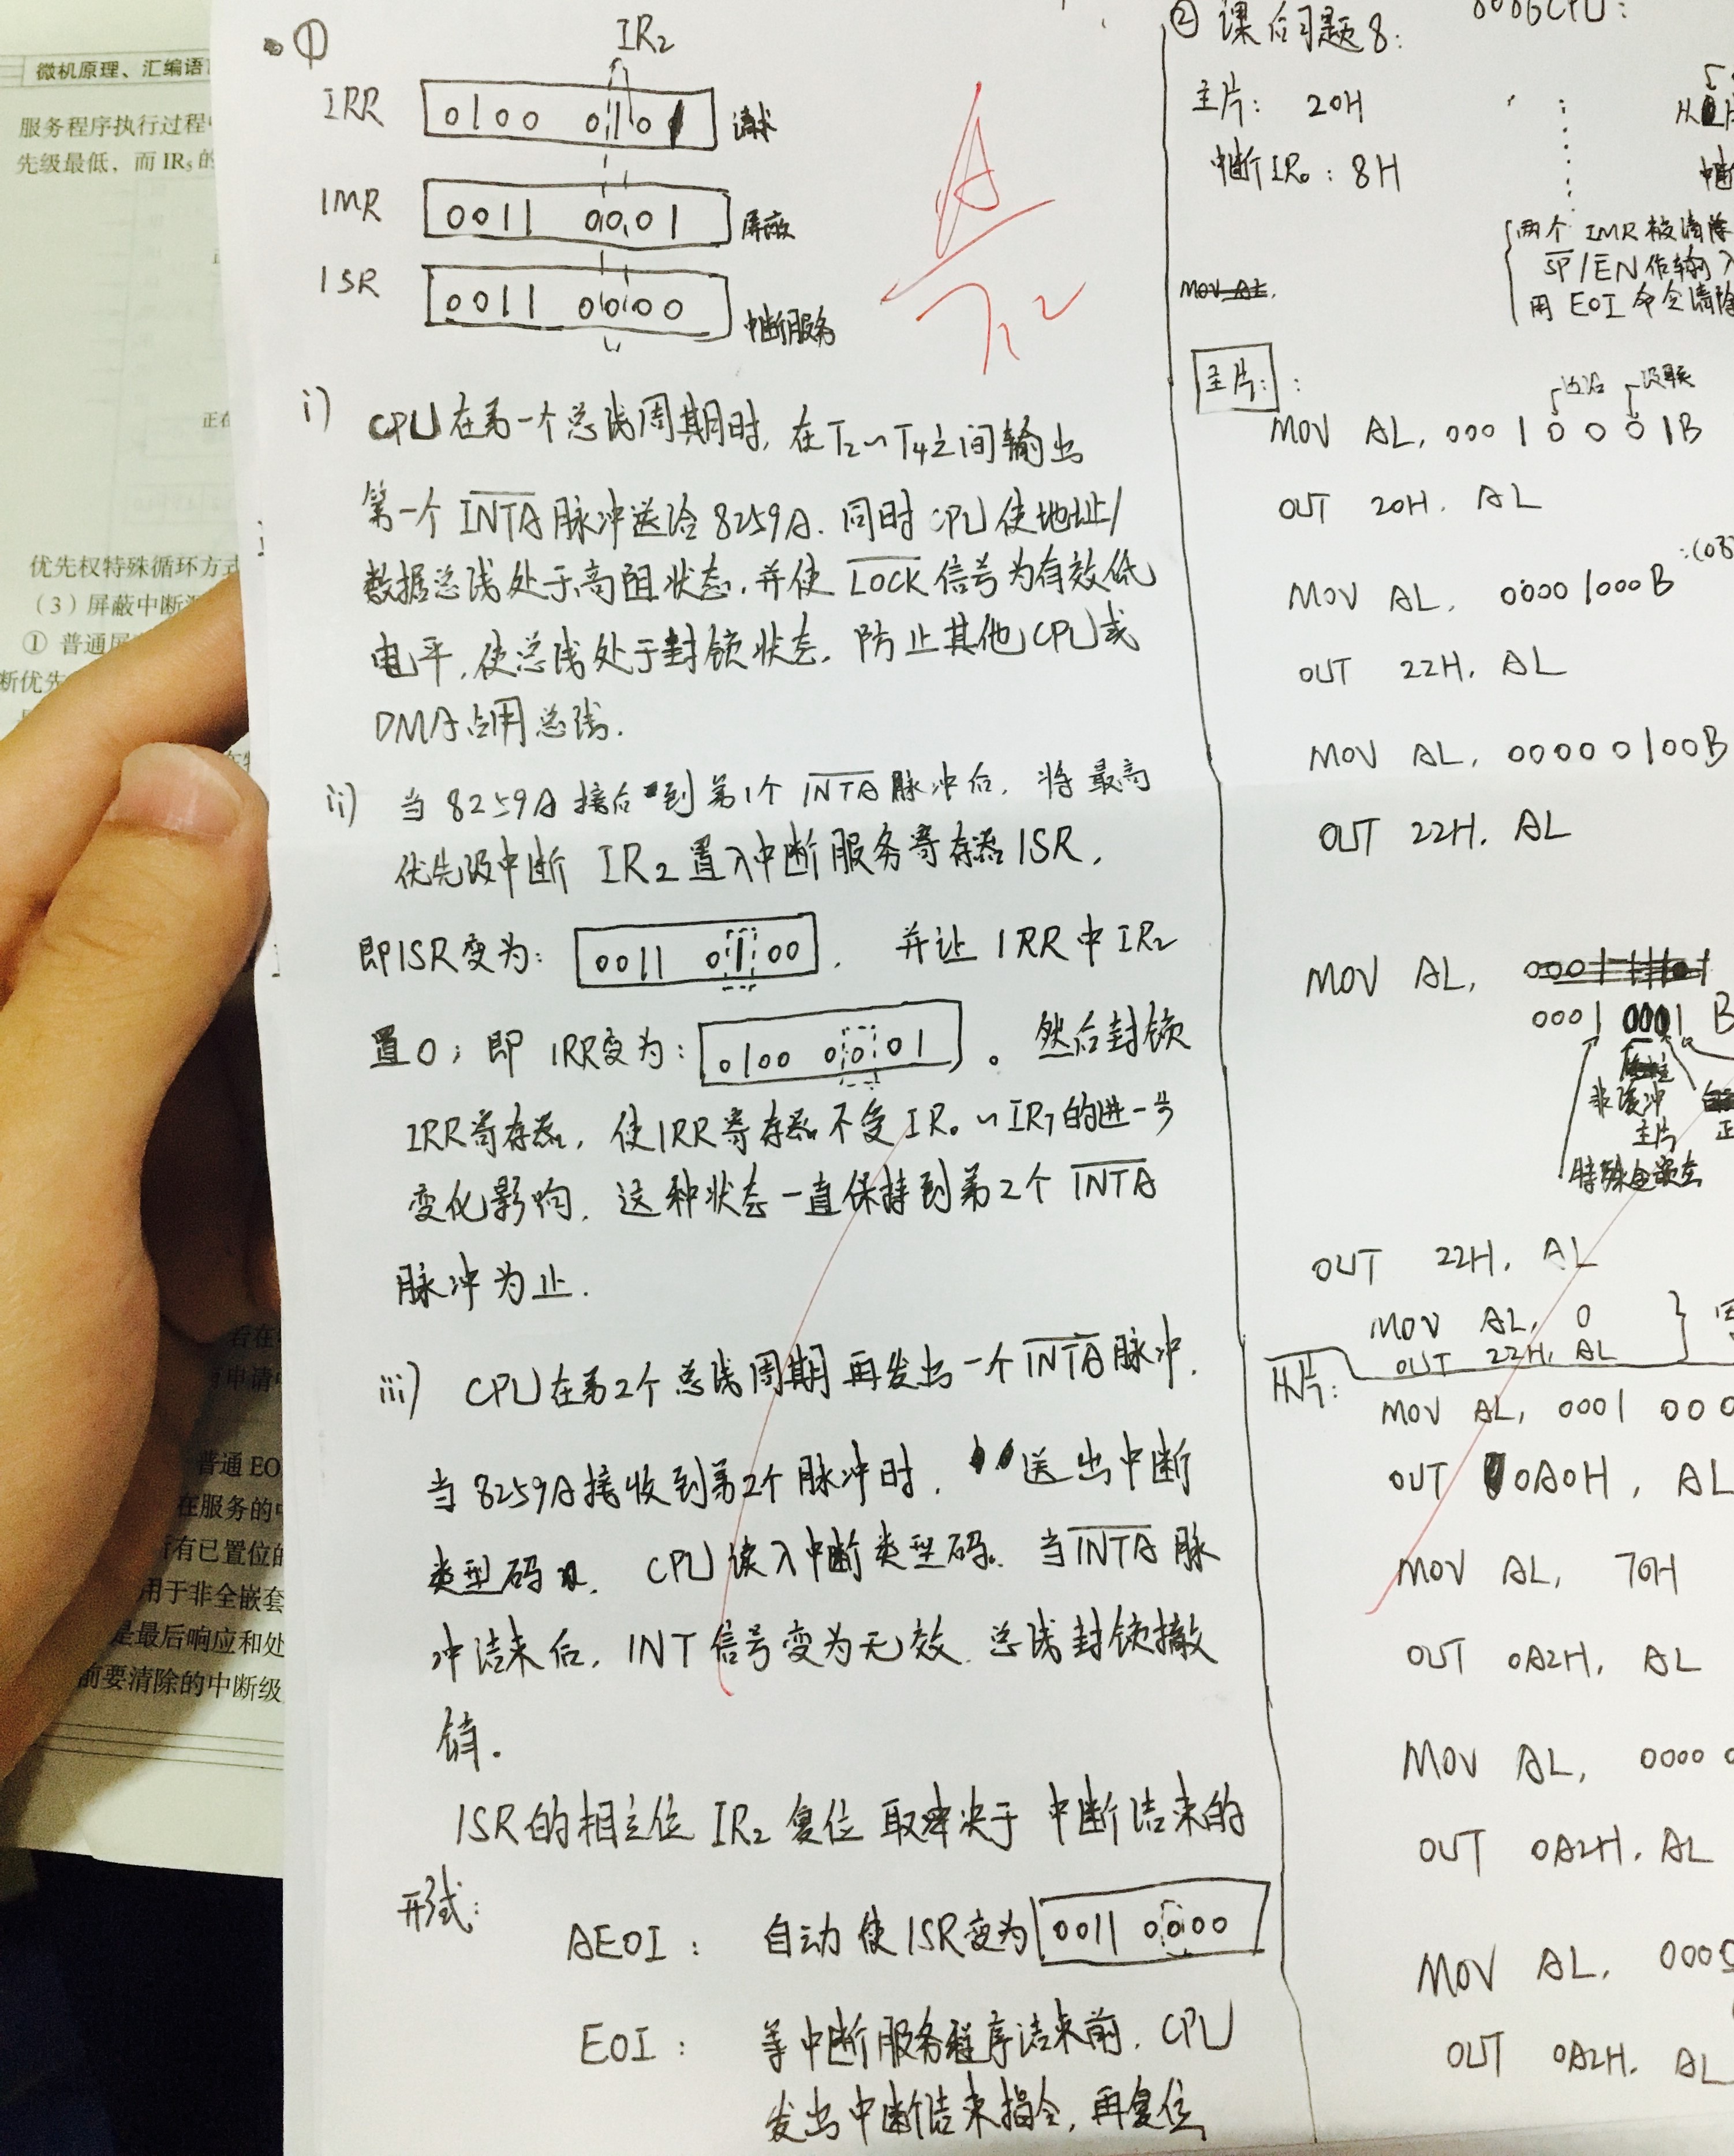 微机原理、汇编语
服务程序执行过程
先级最低，而 IR5 的
正在
优先权特殊循环方式
（3）屏蔽中断源
① 普通屏
断优先
看在
申请
普通 EO
在服务的中
有已置位的
用于非全嵌套
是最后响应和处
前要清除的中断级
① IR2
IRR 0100 0101 请求
IMR 0011 0001 屏蔽
ISR 0011 0000 中断服务
i) CPU在第一个总线周期时，在T2~T4之间输出
第一个 INTA 脉冲送给 8259A. 同时 CPU 使地址/
数据总线处于高阻状态，并使 LOCK 信号为有效低
电平，使总线处于封锁状态，防止其他CPU或
DMA占用总线.
ii) 当 8259A 接到第1个 INTA 脉冲后，将最高
优先级中断 IR2 置入中断服务寄存器 ISR,
即ISR变为: 0011 0100, 并让 IRR 中 IR2
置0; 即 IRR变为: 0100 0001 。然后封锁
IRR寄存器，使IRR寄存器不受 IR0~IR7的进一步
变化影响，这种状态一直保持到第2个 INTA
脉冲为止.
iii) CPU在第2个总线周期再发出一个INTA脉冲.
当8259A接收到第2个脉冲时, 送出中断
类型码, CPU读入中断类型码. 当INTA 脉
冲结束后, INT 信号变为无效. 总线封锁撤
销.
ISR的相应位 IR2 复位 取决于 中断结束的
形式:
AEOI: 自动使 ISR变为 0011 0000
EOI: 等中断服务程序结束前, CPU
发出中断结束指令, 再复位
② 课后习题8: 8086CPU:
主片: 20H
中断IR0: 8H
两个 IMR 被清除
SP/EN 作输入
用 EOI 命令清除
主片:
边沿 级联
MOV AL, 000 1 0 0 0 1B
OUT 20H, AL
MOV AL, 0000 1000B
OUT 22H, AL
MOV AL, 00000100B
OUT 22H, AL
MOV AL,
0001 0001 B
非缓冲
主片
特殊全嵌套
OUT 22H, AL
MOV AL, 0
OUT 22H, AL
从片:
MOV AL, 0001 000
OUT 0A0H, AL
MOV AL, 70H
OUT 0A2H, AL
MOV AL, 0000
OUT 0A2H, AL
MOV AL, 000
OUT 0A2H, AL